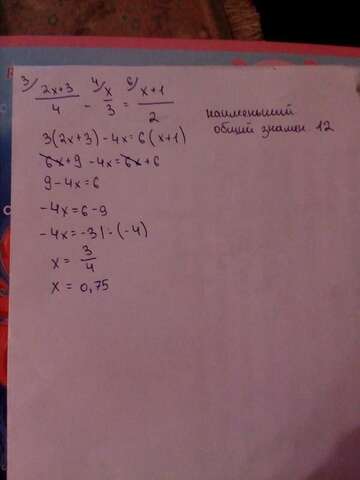 3/ 2x+3/4 - 4/ x/3 = 6/ x+1/2
наименьший
общий знамен. 12
3(2x+3)-4x=6(x+1)
6x+9-4x=6x+6
9-4x=6
-4x=6-9
-4x=-3|:(-4)
x=3/4
x=0,75